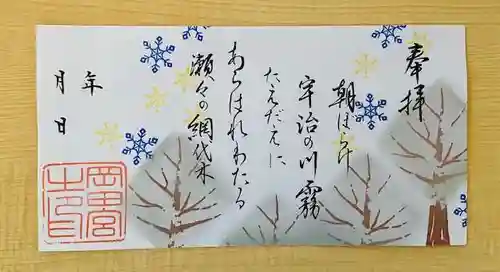 奉拝
朝ぼらけ
宇治の川霧
たえだえに
あらはれわたる
瀬々の網代木
年
月
日